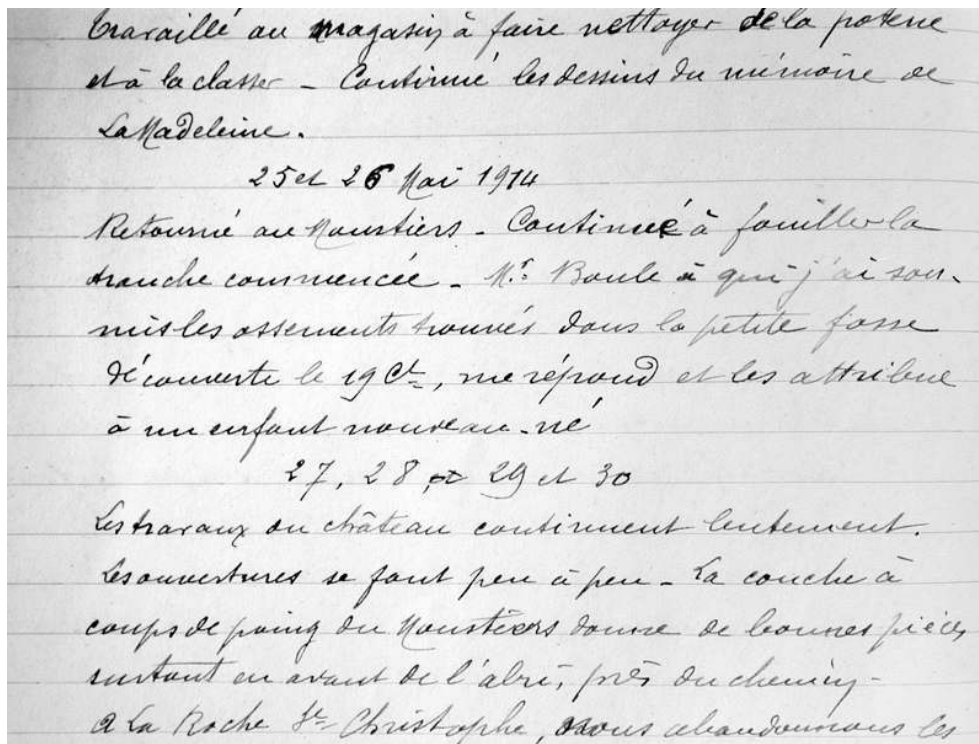 travaillé au magasin à faire nettoyer de la poterie
et à la classer – Continué les dessins du mémoire de
La Madeleine.
25 et 26 Mai 1914
Retourné au Moustiers – Continué à fouiller la
tranche commencée – Mr. Boule à qui j'ai sou-
mis les ossements trouvés dans la petite fosse
découverte le 19 Ct, me répond et les attribue
à un enfant nouveau-né
27, 28, 29 et 30
Les travaux du château continuent lentement.
Les ouvertures se font peu à peu – La couche à
coups de poing du Moustiers donne de bonnes pièces
surtout en avant de l'abri, près du chemin –
A La Roche St Christophe, nous abandonnons les